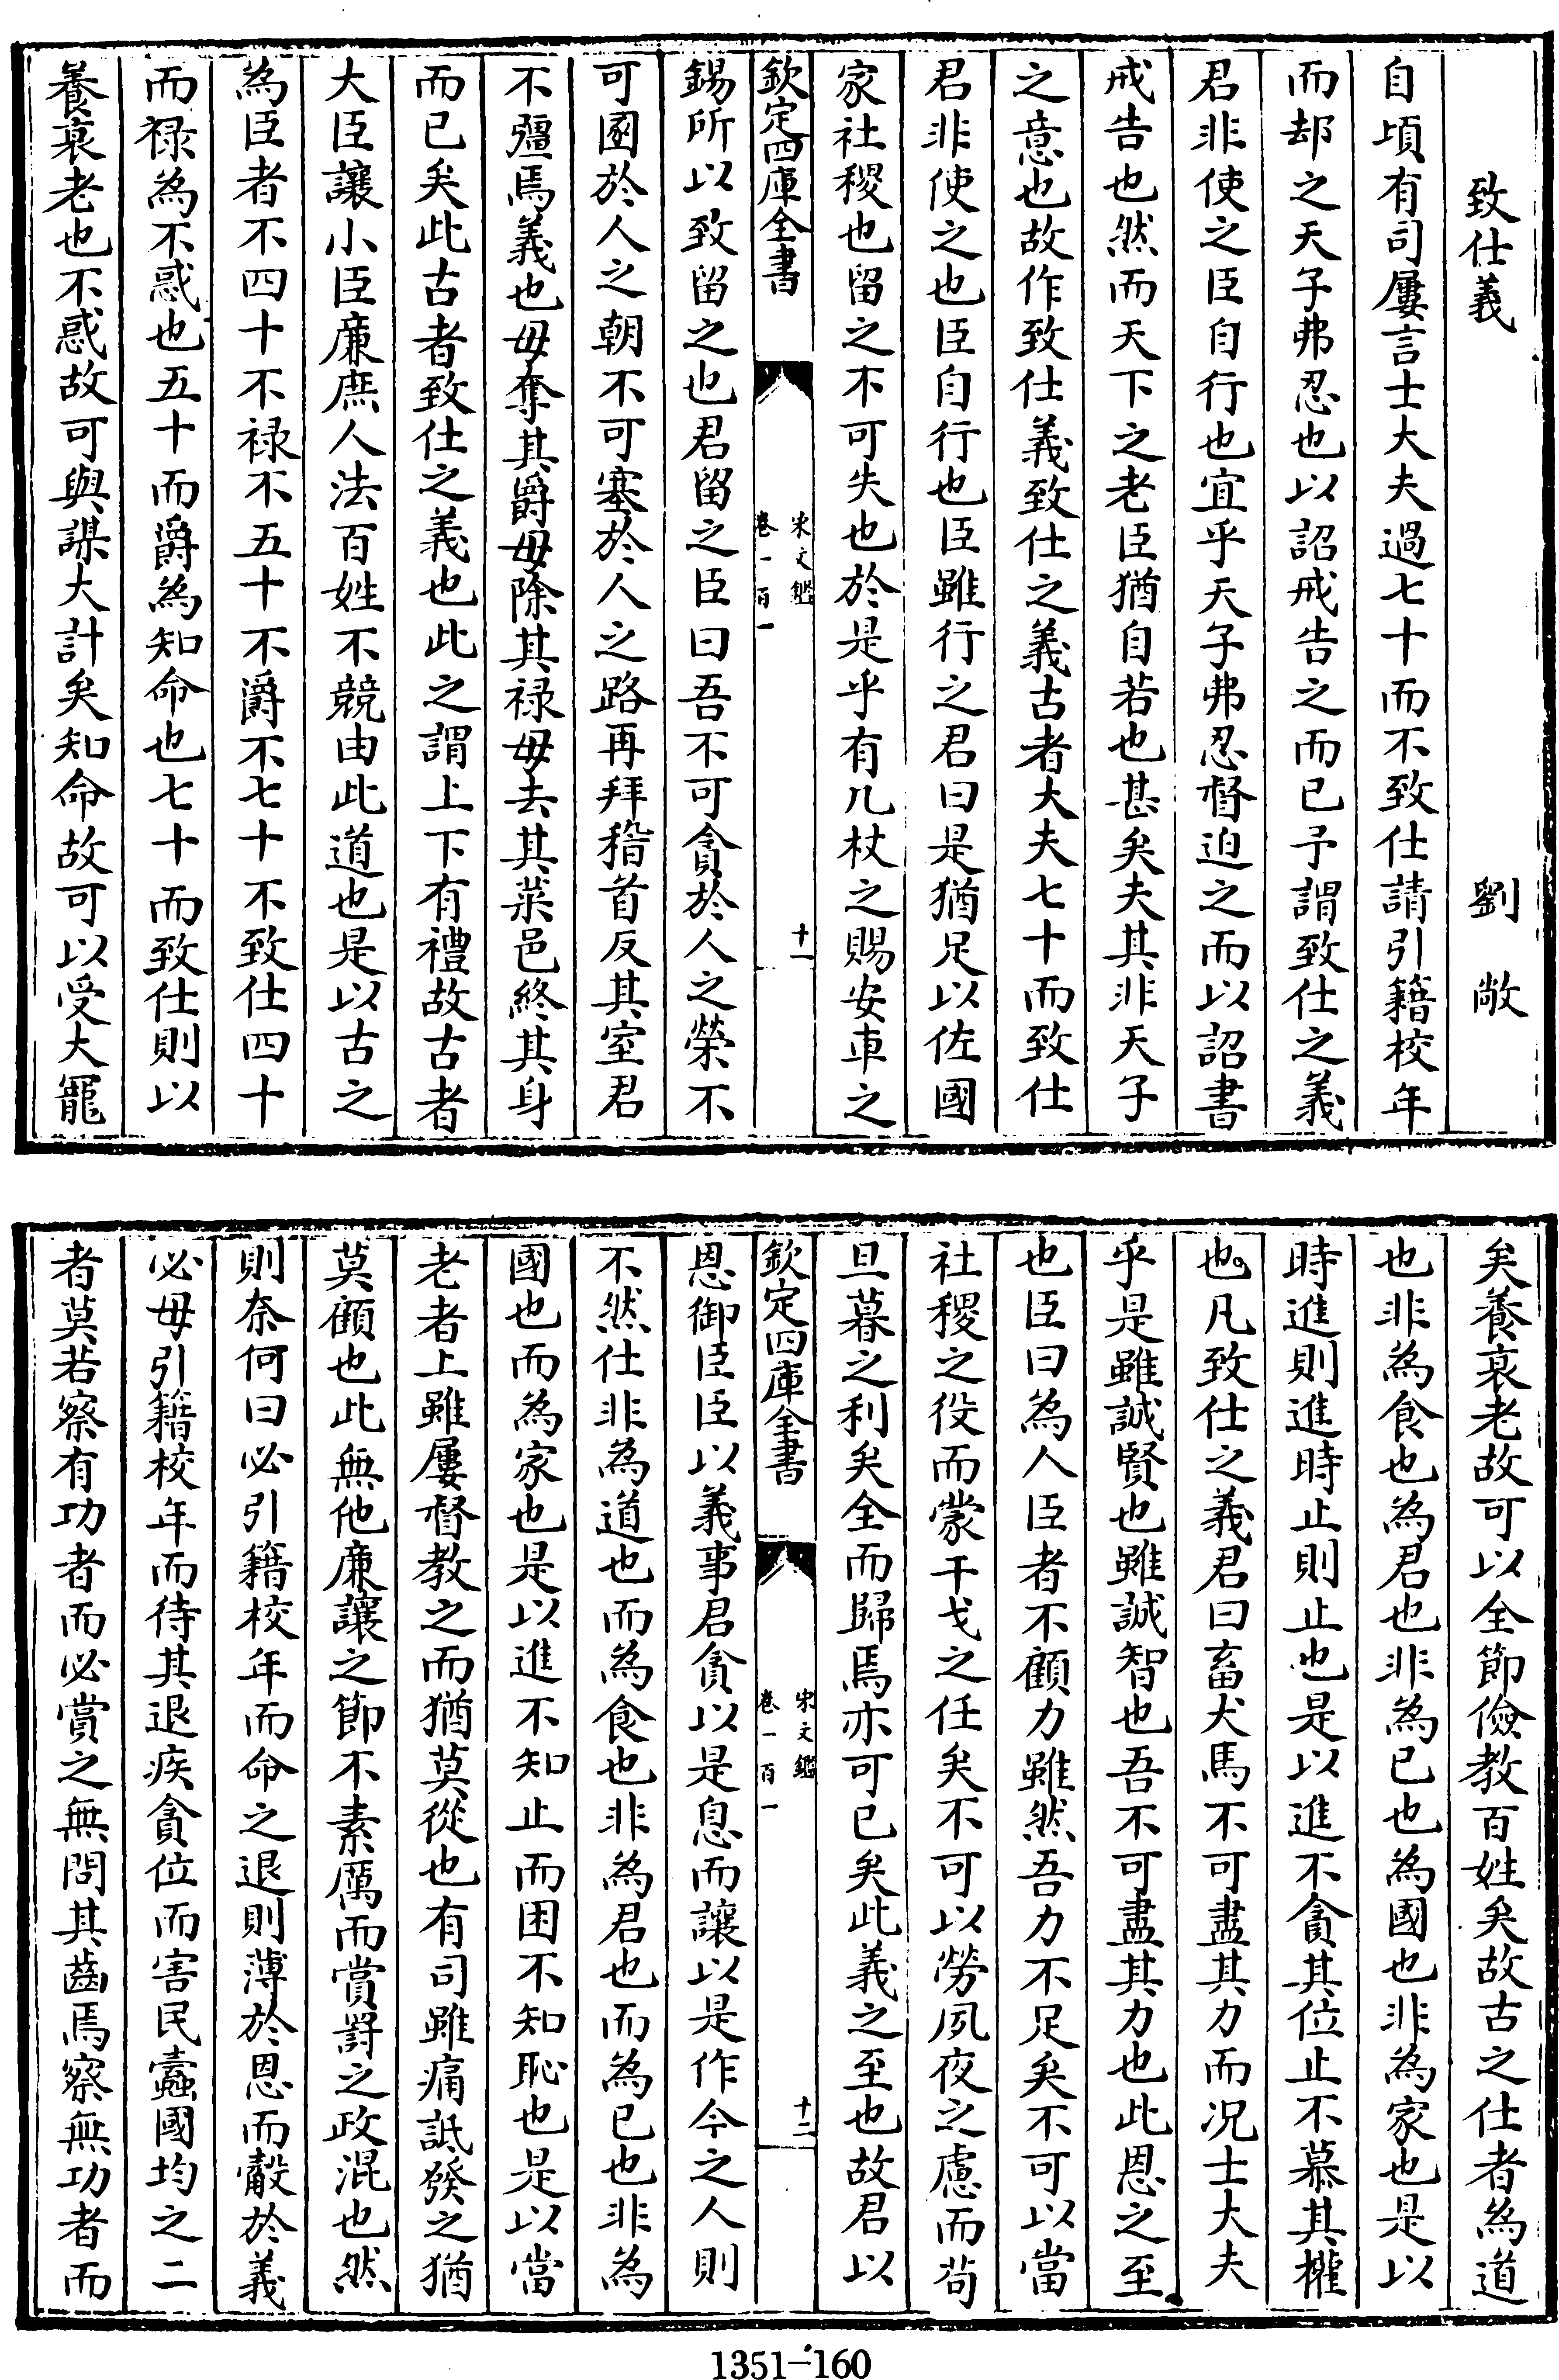 致仕義　劉敞
自頃有司屢言士大夫過七十而不致仕請引籍校年
而却之天子弗忍也以詔戒告之而已予謂致仕之義
君非使之臣自行也宜乎天子弗忍督迫之而以詔書
戒告也然而天下之老臣猶自若也甚矣夫其非天子
之意也故作致仕義致仕之義古者大夫七十而致仕
君非使之也臣自行也臣雖行之君曰是猶足以佐國
家社稷也留之不可失也於是乎有几杖之賜安車之
欽定四庫全書
宋文鑑
卷一百一
十一
錫所以致留之也君留之臣曰吾不可貪於人之榮不
可圂於人之朝不可塞於人之路再拜稽首反其室君
不彊焉義也毋奪其爵毋除其禄毋去其菜邑終其身
而已矣此古者致仕之義也此之謂上下有禮故古者
大臣讓小臣廉庶人法百姓不競由此道也是以古之
為臣者不四十不禄不五十不爵不七十不致仕四十
而禄為不惑也五十而爵為知命也七十而致仕則以
養衰老也不惑故可與謀大計矣知命故可以受大寵
矣養衰老故可以全節儉教百姓矣故古之仕者為道
也非為食也為君也非為己也為國也非為家也是以
時進則進時止則止也是以進不貪其位止不慕其權
也凡致仕之義君曰畜犬馬不可盡其力而况士大夫
乎是雖誠賢也雖誠智也吾不可盡其力也此恩之至
也臣曰為人臣者不顧力雖然吾力不足矣不可以當
社稷之役而蒙干戈之任矣不可以勞夙夜之慮而苟
旦暮之利矣全而歸焉亦可已矣此義之至也故君以
欽定四庫全書
宋文鑑
卷一百一
十二
恩御臣臣以義事君貪以是息而讓以是作今之人則
不然仕非為道也而為食也非為君也而為己也非為
國也而為家也是以進不知止而困不知恥也是以當
老者上雖屢督教之而猶莫從也有司雖痛詆發之猶
莫顧也此無他廉讓之節不素厲而賞爵之政混也然
則奈何曰必引籍校年而命之退則薄於恩而觳於義
必毋引籍校年而待其退疾貪位而害民蠹國均之二
者莫若察有功者而必賞之無問其齒焉察無功者而
1351-160